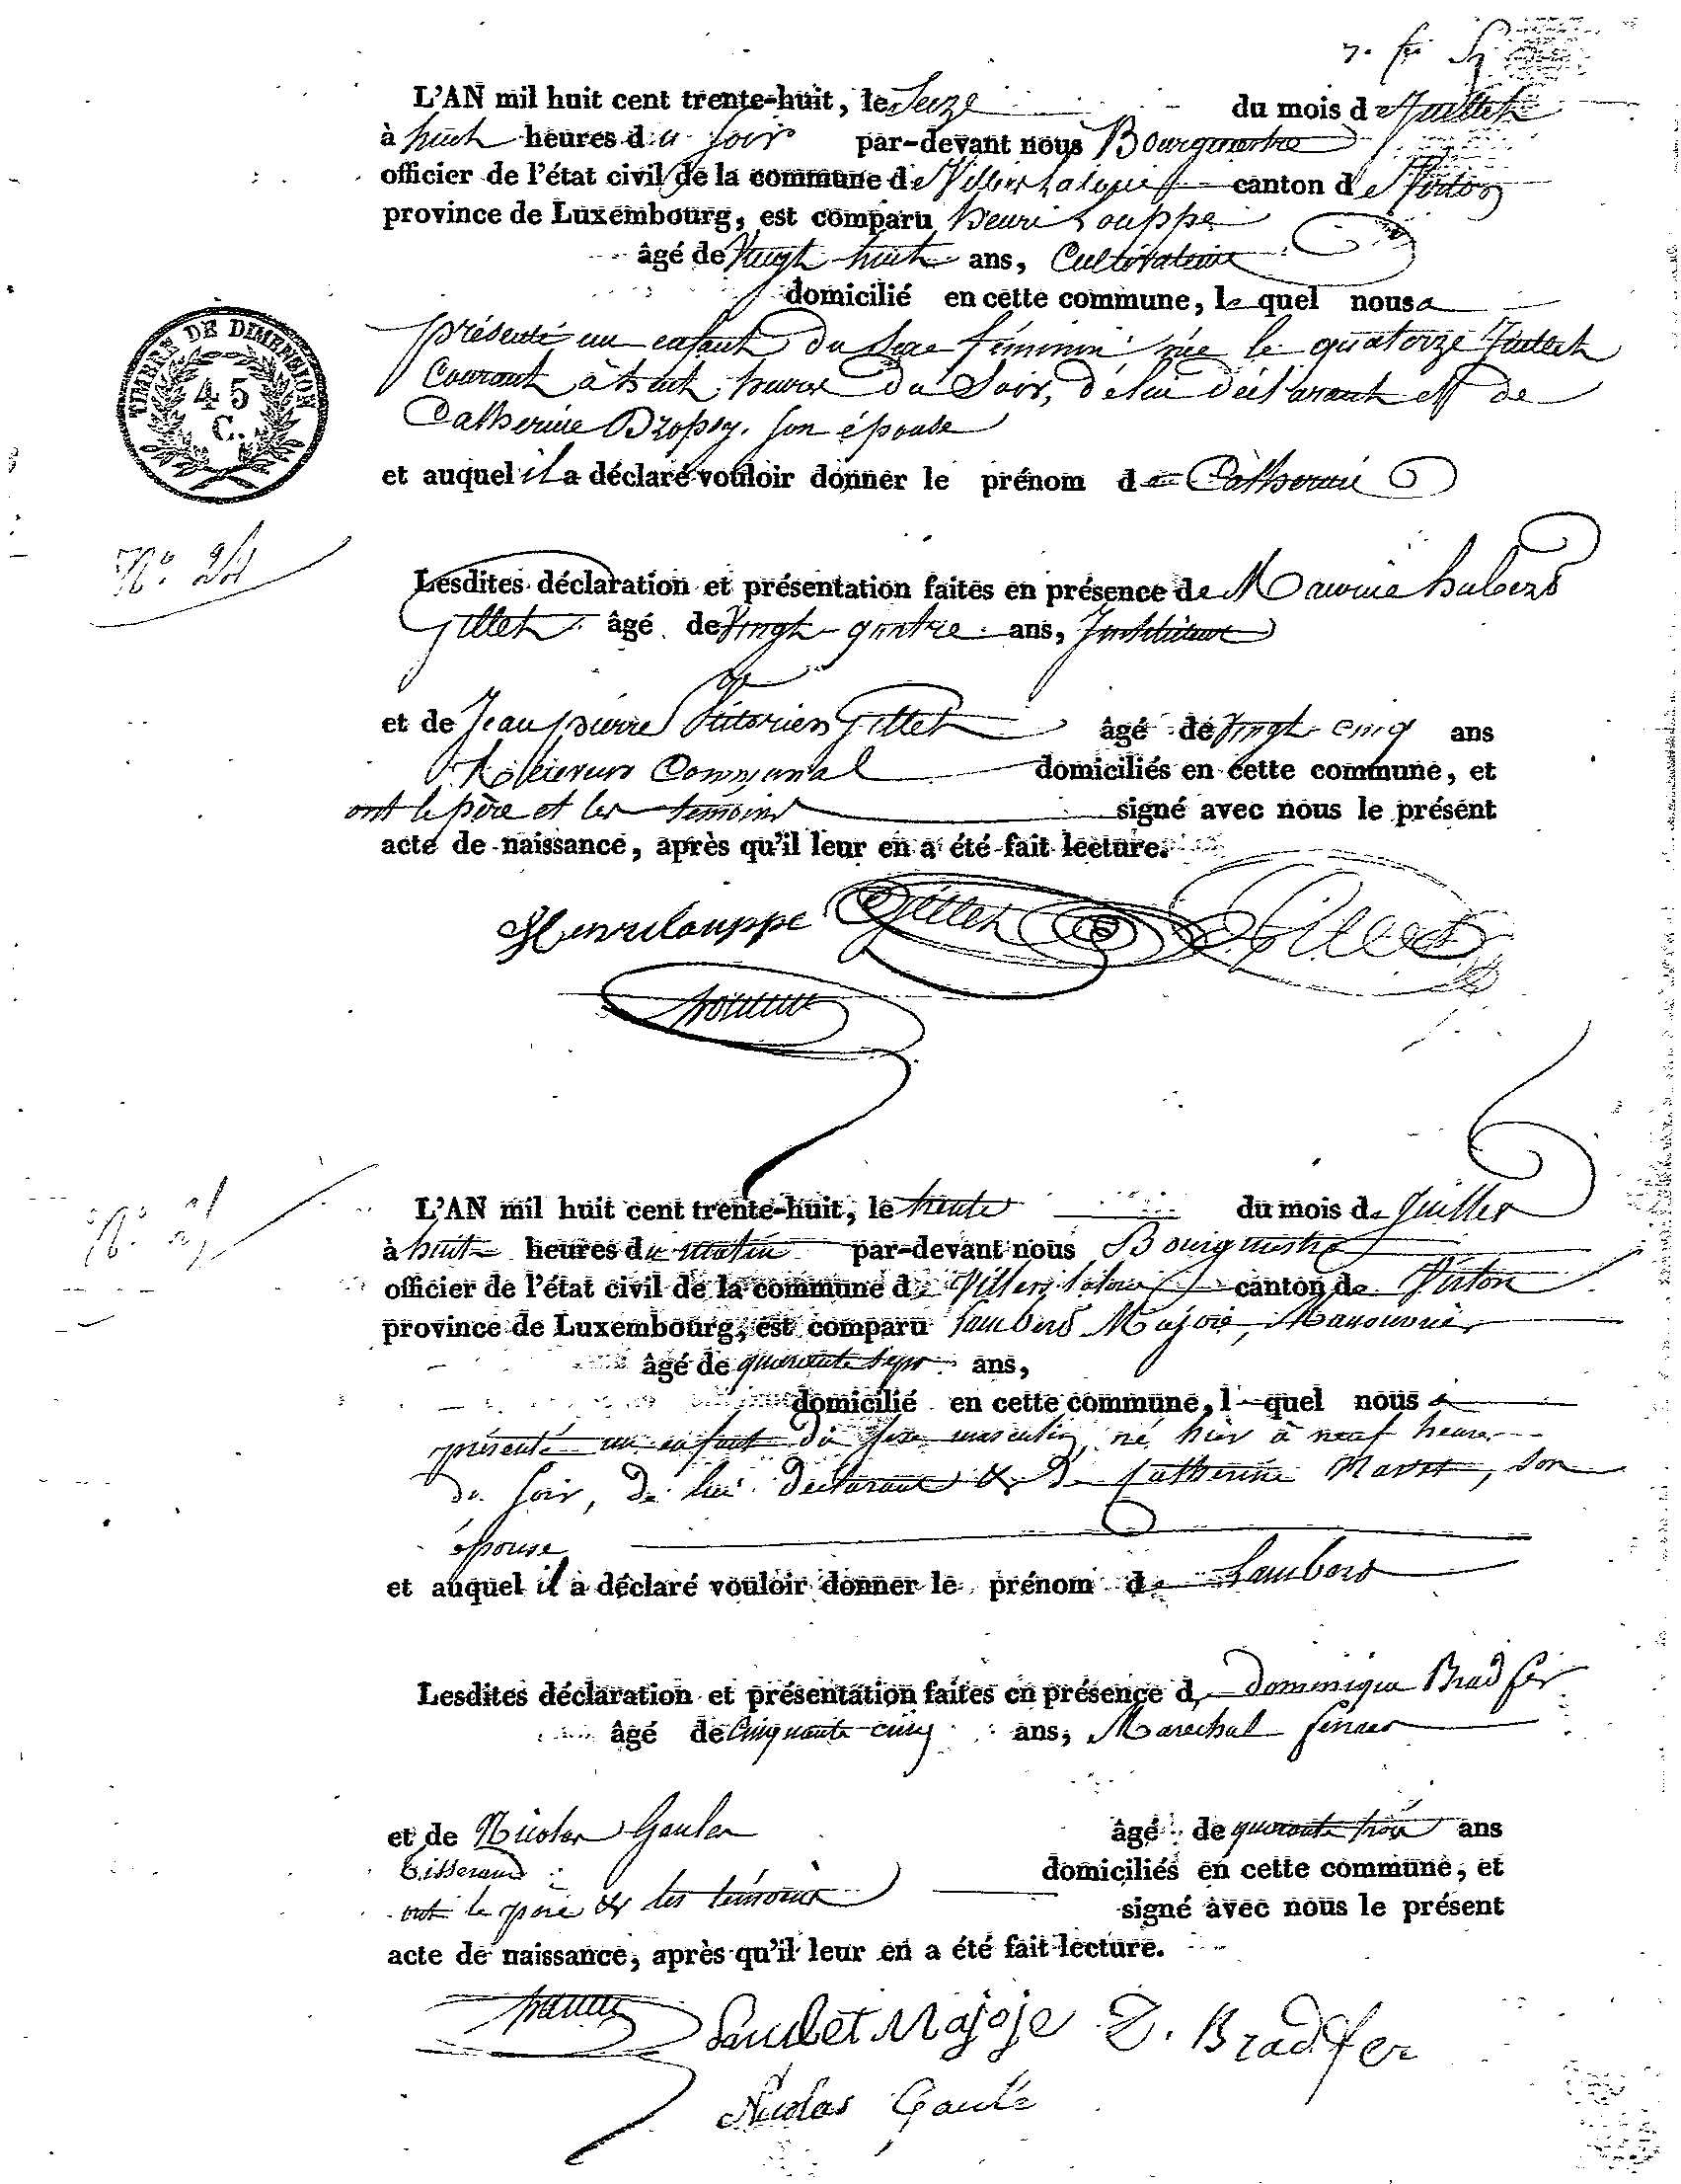 7.
L'AN mil huit cent trente-huit, le Seize du mois de Juillet
à huit heures du Soir par-devant nous Bourgmestre
officier de l'état civil de la commune de Villers Laloue canton de Virton
province de Luxembourg, est comparu henri Louppe
âgé de Vingt huit ans, Cultivateur
domicilié en cette commune, le quel nous a
TIMBRE DE DIMENSION
45
C.
présenté un enfant du Sexe féminin née le quatorze Juillet
Courant à huit heures du Soir, de lui déclarant et de
Catherine Dropsy son épouse
et auquel il a déclaré vouloir donner le prénom de Catherine
N°. 24
Lesdites déclaration et présentation faites en présence de Maurice hubert
Gillet âgé de Vingt quatre ans, Instituteur
et de Jean pierre Victorien Gillet âgé de Vingt cinq ans
Receveur Communal domiciliés en cette commune, et
ont le père et les témoins signé avec nous le présent
acte de naissance, après qu'il leur en a été fait lecture.
Henri Louppe Gillet Gillet
N°. 25
L'AN mil huit cent trente-huit, le trente du mois de Juillet
à huit heures du matin par-devant nous Bourgmestre
officier de l'état civil de la commune de Villers Laloue canton de Virton
province de Luxembourg, est comparu Lambert Majoie, Manouvrier
âgé de quarante sept ans,
domicilié en cette commune, l quel nous a
présenté un enfant du sexe masculin, né hier à neuf heures
du soir, de lui déclarant & de Catherine Mavet, son
épouse
et auquel il a déclaré vouloir donner le prénom de Lambert
Lesdites déclaration et présentation faites en présence de dominique Bradfer
âgé de cinquante cinq ans, Maréchal ferrant
et de Nicolas Gauler âgé de quarante trois ans
tisserand domiciliés en cette commune, et
ont le père & les témoins signé avec nous le présent
acte de naissance, après qu'il leur en a été fait lecture.
Lambet Majoje D. Bradfer
Nicolas Gaulé